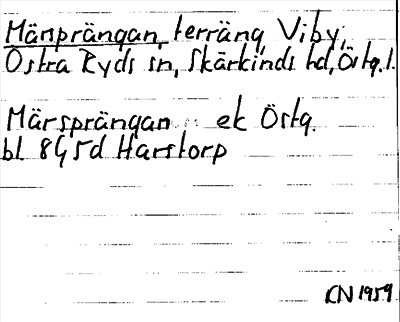 Mänprängan, terräng, Viby,
Östra Ryds sn, Skärkinds hd, Östg. l.
Märsprängan ek Östg.
bl 8G5d Harstorp
CN 1959